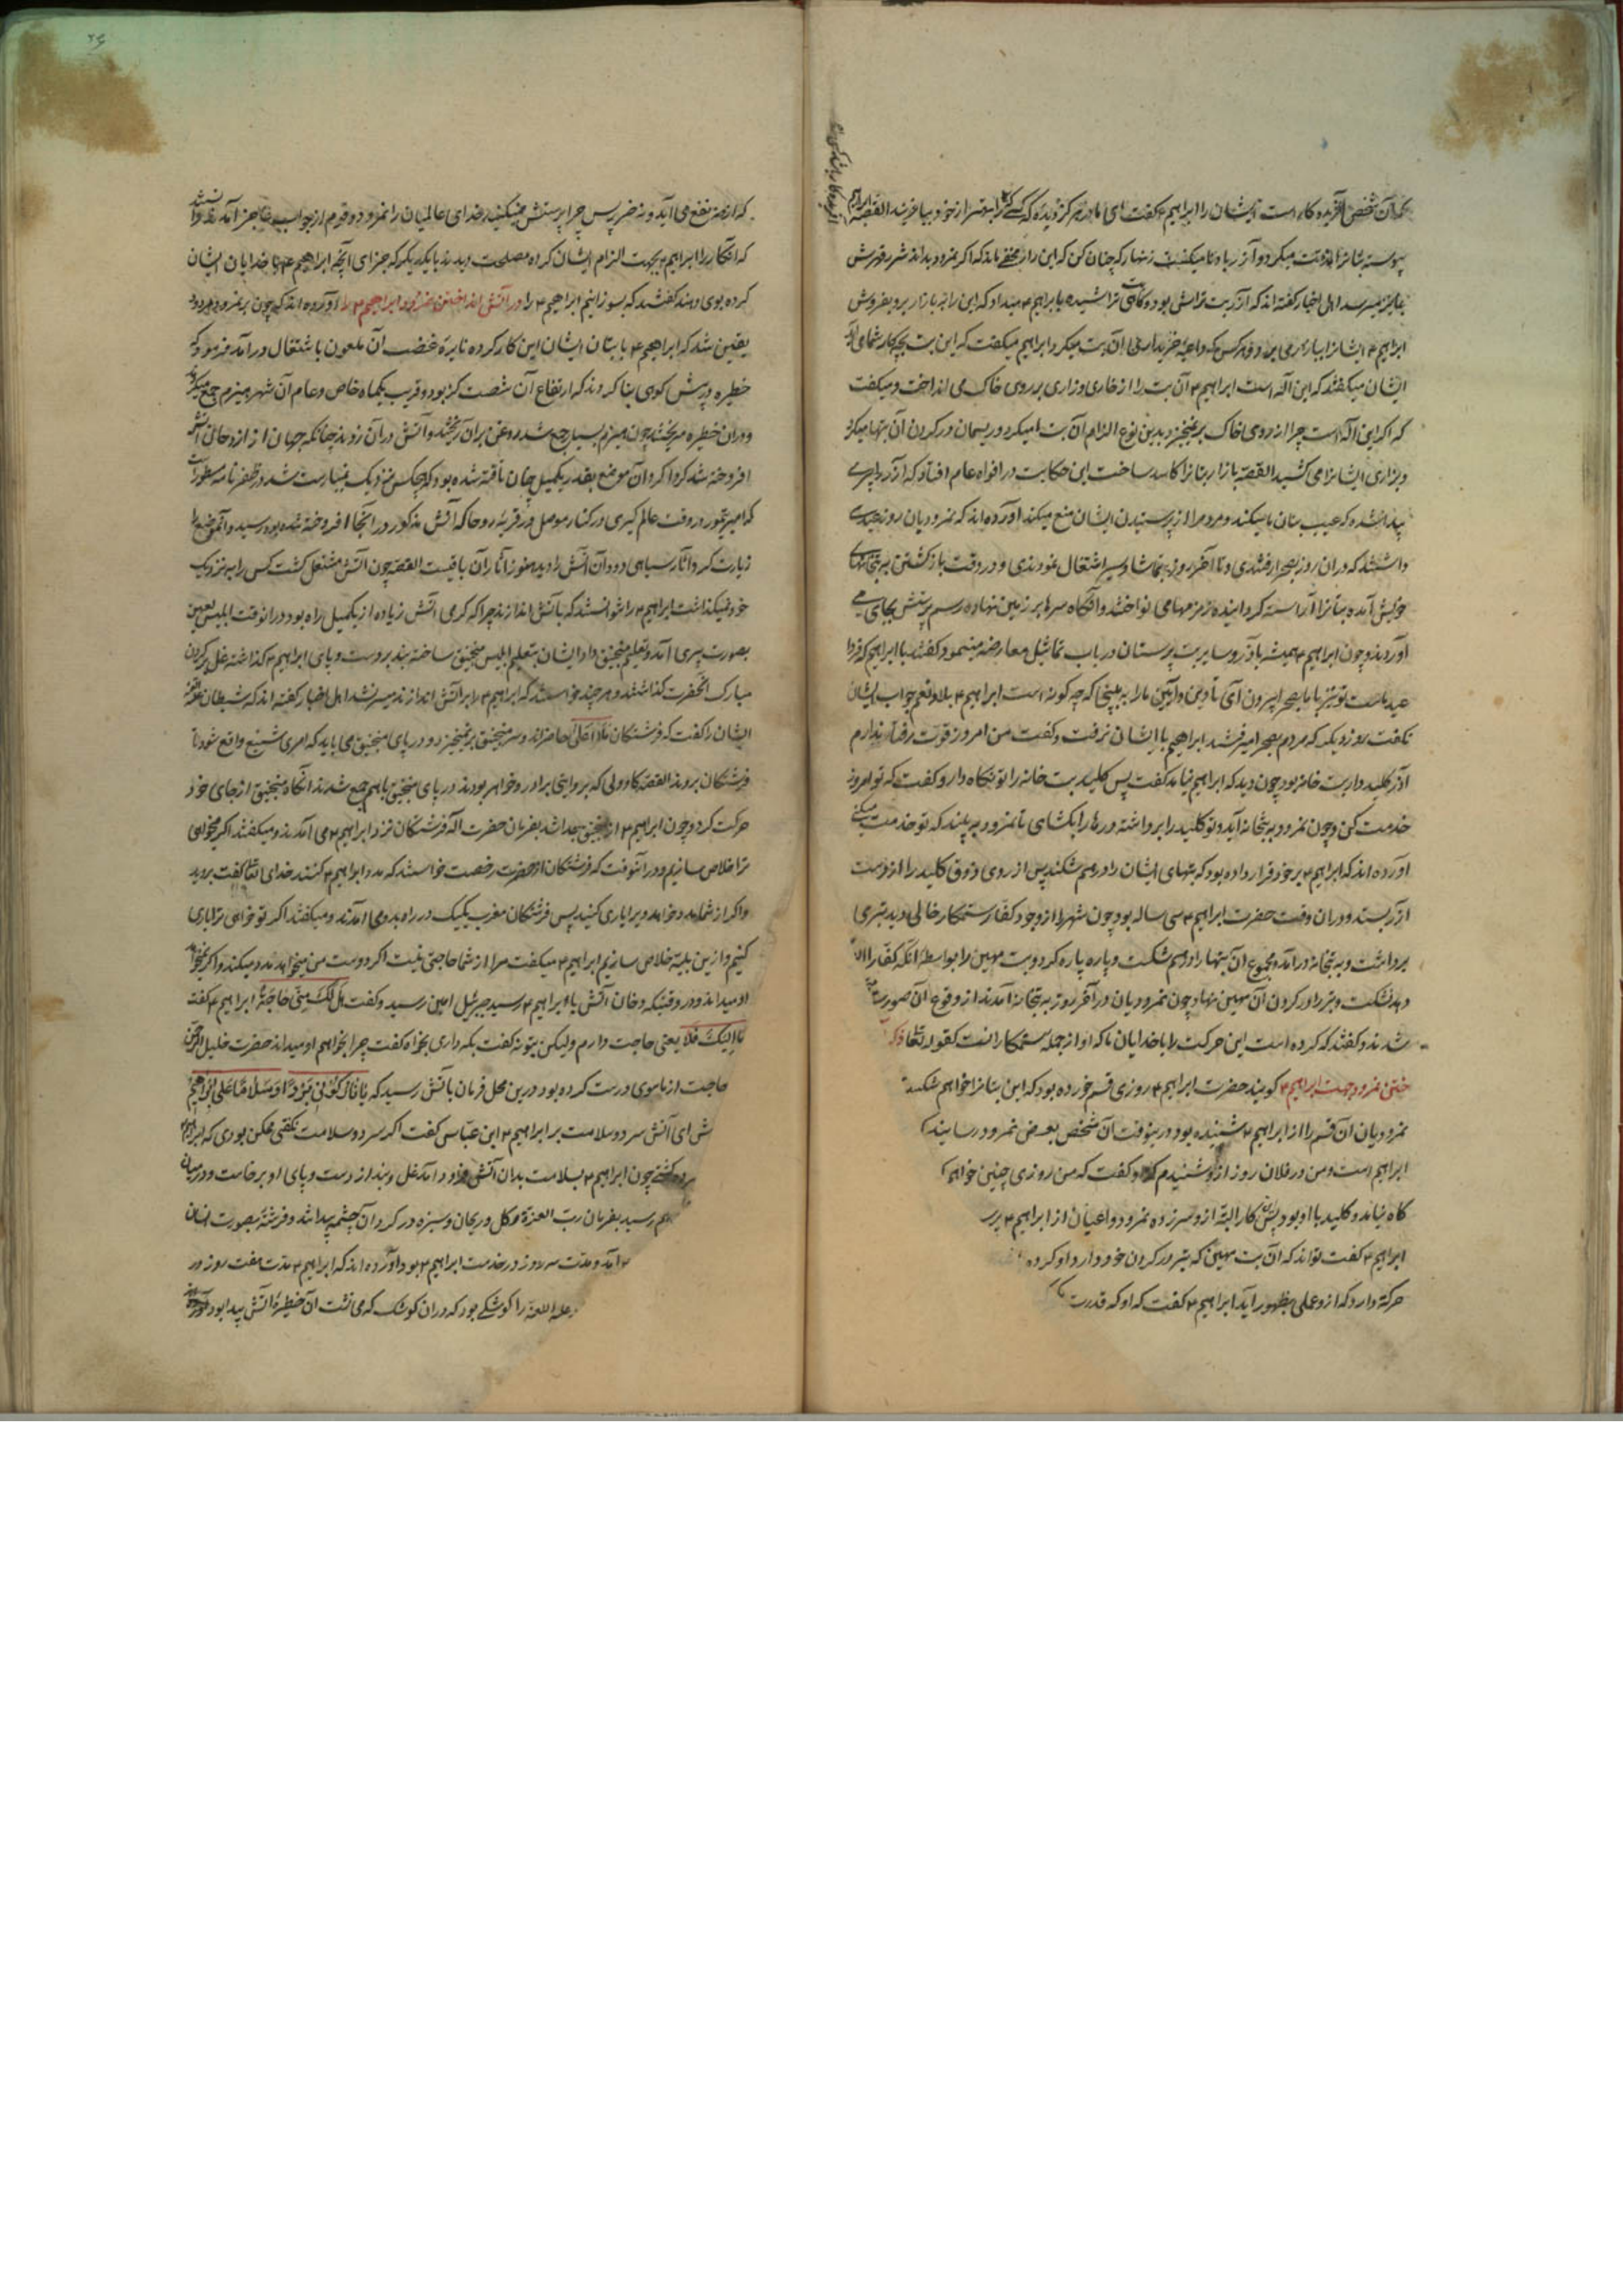 که آن شخص آفریده کار است ایشان را ابراهیم ۴ کفت ای مادر هرکز دیده که کسی را بهتر از خود بیافریند القصه ابراهیم
پیوسته بتانرا مذمت میکرد و آزر با وی میکفت زنهار که چنان کن که این راز مخفی ماند که اکر نمرود بداند شر و قهرش
بما برسد اهل اخبار کفته اند که آزر بت تراش بود و کاهی بت تراشیده بابراهیم ۴ میداد که این را به بازار برو بفروش
ابراهیم ۴ ایشانرا ببازار می برد و هرکس که داعیه خریداری آن بت میکرد ابراهیم میکفت که این بت بچه کار شما می آید
ایشان میکفتند که این اله است ابراهیم ۴ آن بت را از خاری و زاری بر روی خاک می انداخت و میکفت
که اکر این اله است چرا از روی خاک بر نمیخیزد بدین نوع الزام آن بت میکرد و ریسمان در کردن آن بتها میکرد
و بزاری ایشانرا می کشید القصه بازار بتانرا کاسد ساخت این حکایت در افواه عام افتاد که آزر را پسری
پیدا شده که عیب بتان میکند و مردم را از پرستیدن ایشان منع میکند آورده اند که نمرودیان روز عیدی
داشتند که در ان روز بصحرا رفتندی و تا آخر روز بتماشا و سیر اشتغال نمودندی و در وقت بازکشتن به بتخانهای
خویش آمده بتانرا آراسته کردانیده زمزمها می نواختند و آنکاه سرها بر زمین نهاده رسم پرستش بجای می
آوردند و چون ابراهیم ۴ همیشه با آزر و سایر بت پرستان در باب تماثیل معارضه مینمود کفتند با ابراهیم که فردا
عید ماست تو نیز با ما بصحرا بیرون آی تا دین و آیین ما را به بینی که چه کونه است ابراهیم ۴ بلا و نعم جواب ایشان
نکفت روز دیکر که مردم بصحرا میرفتند ابراهیم با ایشان نرفت و کفت من امروز قوت رفتار ندارم
آذر کلید دار بت خانه بود چون دید که ابراهیم نیامد کفت پس کلید بت خانه را تو نکاه دار و کفت که تو امروز
خدمت کن و چون نمرود به بتخانه آید تو کلید را برداشته درها را بکشای تا نمرود به بیند که تو خدمت میکنی
آورده اند که ابراهیم ۴ بر خود قرار داده بود که بتهای ایشان را درهم شکند پس از روی ذوق کلید را از دست
آزر بستد و در ان وقت حضرت ابراهیم ۴ سی ساله بود چون شهر را از وجود کفار ستمکار خالی دید تبری
برداشت و به بتخانه درآمد و مجموع آن بتها را درهم شکست و پاره پاره کرد و بت مهین را بواسطه آنکه کفار را
نشکست و تبر را در کردن آن مهین نهاد و چون نمرودیان در آخر روز به بتخانه آمدند از وقوع آن صورت
شدند و کفتند که کرده است این حرکت را با خدایان ما که او از جمله ستمکارانست کقوله تعالی
نمرود جهت ابراهیم ۴ کویند حضرت ابراهیم ۴ روزی قسم خورده بود که این بتانرا خواهم شکست
نمرودیان آن قسم را از ابراهیم ۴ شنیده بود درینوقت آن شخص بعرض نمرود رسانید
ابراهیم است و من در فلان روز ازو شنیدم که او کفت که من روزی چنین خواهم
کاه نیامد و کلید با او بود پس این کار البته ازو سرزده نمرود و اعیان از ابراهیم ۴
ابراهیم ۴ کفت تواند که آن بت مهین که تبر در کردن خود دارد او کرده
حرکة دارد که ازو عملی بظهور آید ابراهیم ۴ کفت که او که قدرت
۲۶
که از من نفع می آید و نه ضر پس چرا پرستش میکنید خدای عالمیان را نمرود و قوم از جواب عاجز آمدند و دانستند
که آنکار را ابراهیم ۴ بجهت الزام ایشان کرده مصلحت دیدند با یکدیکر که جزای آنچه ابراهیم ۴ با خدایان ایشان
کرده بوی دهند کفتند که بسوزانیم ابراهیم ۴ را در آتش انداختن نمرود ابراهیم ۴ را آورده اند که چون بر نمرود مردود
یقین شد که ابراهیم ۴ با بتان ایشان این کار کرده نایره غضب آن ملعون باشتغال درآمد فرمود که
خطیره در پیش کوهی بنا کردند که ارتفاع آن شصت کز بود و قریب یکماه خاص و عام آن شهر هیزم جمع میکردند
و در ان خطیره میریختند چون هیزم بسیار جمع شد روغن بران ریختند و آتش در آن زدند چنانکه جهان از
افروخته شد کرداکرد آن موضع بقدر یکمیل چنان تافته شده بود که هیچکس نزدیک نمییارست شد در ظفرنامه مسطورست
که امیر تیمور در وقت عالم کیری در کنار موصل در قریه روحا که آتش مذکور در آنجا افروخته شده بود رسید و آنموضع را
زیارت کرد و آثار سیاهی دود آن آتش را دید هنوز آثار آن باقیست القصه چون آتش مشتعل کشت کس را به نزدیک
خود نمیکذاشت ابراهیم ۴ را نتوانستند که بآتش اندازند چرا که کرمی آتش زیاده از یکمیل راه بود در انوقت ابلیس لعین
بصورت پیری آمد و تعلیم منجنیق داد ایشان بتعلیم ابلیس منجنیق ساخته بند بر دست و پای ابراهیم ۴ کذاشته غل بر کردن
مبارک آنحضرت کذاشتند و هر چند خواستند که ابراهیم ۴ را بر آتش اندازند میسر نشد اهل اخبار کفته اند که شیطان
ایشان را کفت که فرشتکان ملاء اعلی حاضراند و سر منجنیق بر نمیخیزد و در پای منجنیق می باید که امری شنیع واقع شود تا
فرشتکان بروند القصه کاو ولی که بروایتی برادر و خواهر بودند در پای منجنیق باهم جمع شدند آنکاه منجنیق از جای خود
حرکت کرد و چون ابراهیم ۴ از منجنیق جدا شد بفرمان حضرت اله فرشتکان نزد ابراهیم ۴ می آمدند و میکفتند اکر میخواهی
ترا خلاص سازیم و در آنوقت که فرشتکان از حضرت رخصت خواستند که مدد ابراهیم ۴ کنند خدای تعالی کفت بروید
و اکر از شما مدد خواهد ویرا یاری کنید پس فرشتکان مغرب یکیک در راه بدو می آمدند و میکفتند اکر تو خواهی ترا یاری
کنیم و ازین بلیه خلاص سازیم ابراهیم ۴ میکفت مرا از شما حاجتی نیست اکر دوست من میخواهد مدد میکند و اکر نخواهد
او میداند و در وقتیکه دخان آتش با ابراهیم ۴ رسید جبرئیل امین رسید و کفت هَل لَکَ مِنّی حاجَةٌ ابراهیم ۴ کفت
اِلَیکَ فَلا یعنی حاجت دارم ولیکن بتو نه کفت بکه داری بخواه کفت چرا بخواهم او میداند حضرت خلیل الرحمن
حاجت از ماسوی درست کرده بود درین محل فرمان بآتش رسید که یا نارُ کُونی بَرداً وَسَلاماً عَلی اِبراهیم
ای آتش سرد و سلامت بر ابراهیم ۴ ابن عباس کفت اکر سرد و سلامت نکفتی ممکن بودی که ابراهیم
چون ابراهیم ۴ بسلامت بدان آتش فرود آمد غل و بند از دست و پای او برخاست و در میان
رسید بفرمان رب العزة کل و ریحان و سبزه در کرد آن چشمه پیدا شد و فرشته بصورت انسان
آمد و مدت سه روز در خدمت ابراهیم ۴ بود و آورده اند که ابراهیم ۴ مدت هفت روز در
علیه اللعنة را کوشکی بود که در ان کوشک که می نشست آن خطیره آتش پیدا بود